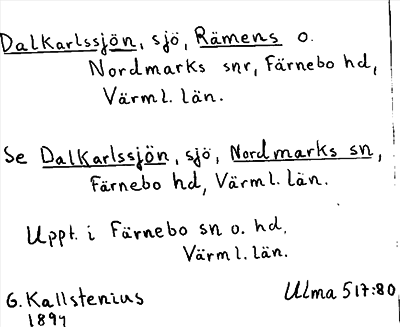 Dalkarlssjön, sjö, Rämens o.
Nordmarks snr, Färnebo hd,
Värml. län.
Se Dalkarlssjön, sjö, Nordmarks sn,
Färnebo hd, Värml. län.
Uppt. i Färnebo sn o. hd,
Värml. län.
G. Kallstenius
1894
Ulma 517:80